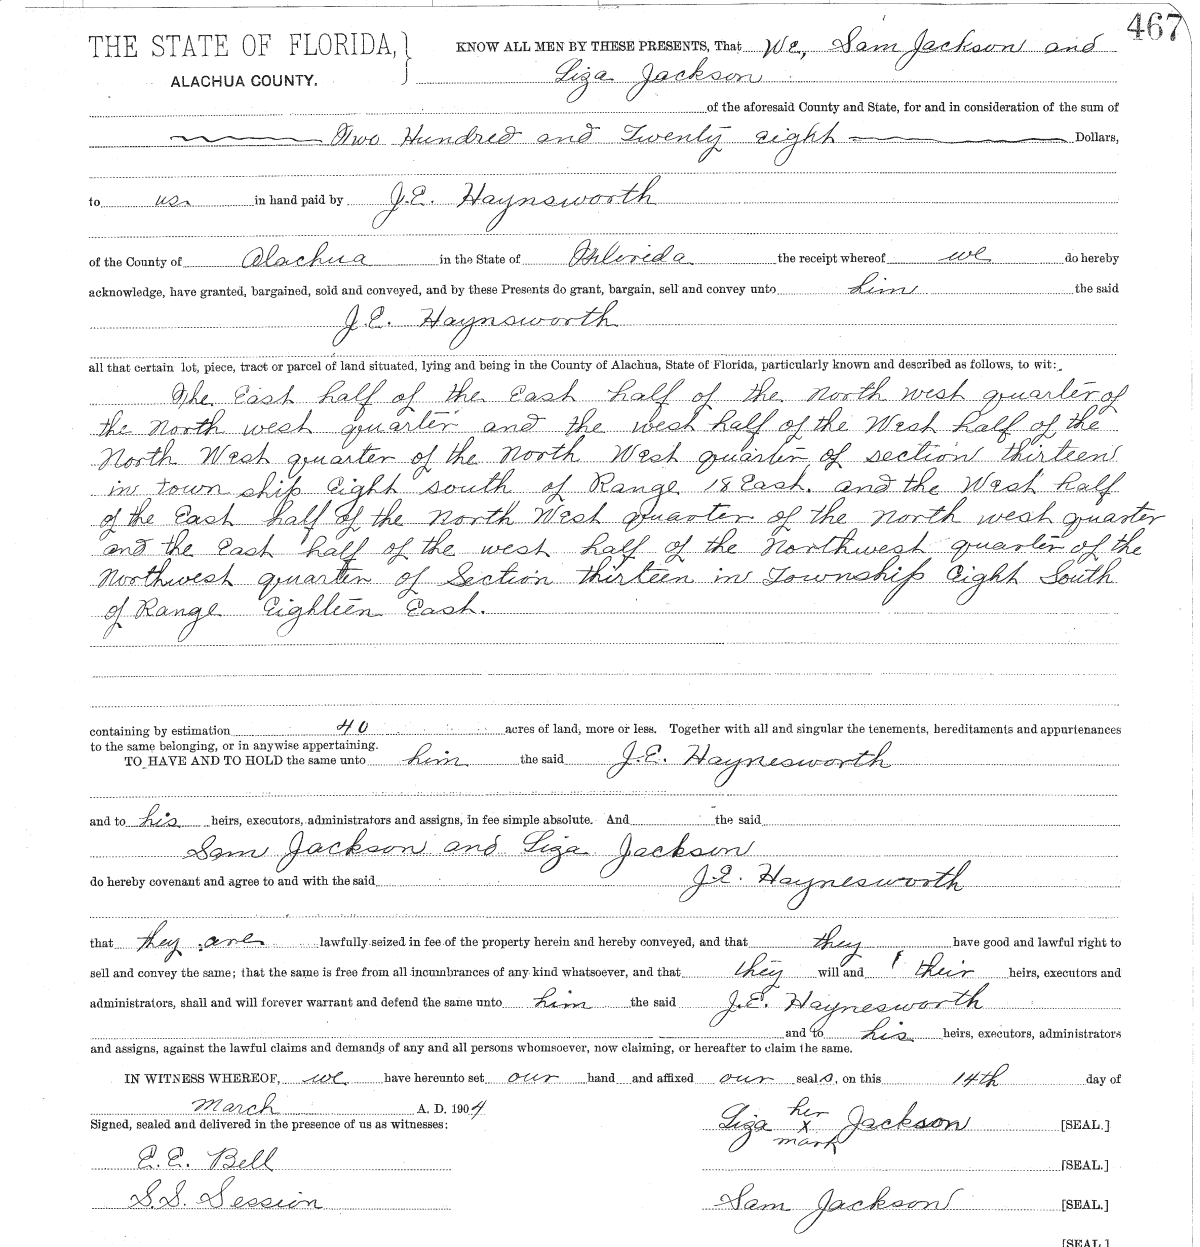 467
THE STATE OF FLORIDA,
ALACHUA COUNTY.
KNOW ALL MEN BY THESE PRESENTS, That We, Sam Jackson and
Liza Jackson
of the aforesaid County and State, for and in consideration of the sum of
Two Hundred and Twenty eight Dollars,
to us in hand paid by J.E. Haynsworth
of the County of Alachua in the State of Florida the receipt whereof we do hereby
acknowledge, have granted, bargained, sold and conveyed, and by these Presents do grant, bargain, sell and convey unto him the said
J.E. Haynsworth
all that certain lot, piece, tract or parcel of land situated, lying and being in the County of Alachua, State of Florida, particularly known and described as follows, to wit:
The East half of the East half of the north west quarter of
the north west quarter and the west half of the West half of the
North West quarter of the North West quarter of section thirteen
in town ship Eight south of Range 18 East. and the West half
of the East half of the North West quarter of the north west quarter
and the East half of the west half of the Northwest quarter of the
Northwest quarter of Section thirteen in Township Eight South
of Range Eighteen East.
containing by estimation 40 acres of land, more or less. Together with all and singular the tenements, hereditaments and appurtenances
to the same belonging, or in anywise appertaining.
TO HAVE AND TO HOLD the same unto him the said J.E. Haynesworth
and to his heirs, executors, administrators and assigns, in fee simple absolute. And the said
Sam Jackson and Liza Jackson
do hereby covenant and agree to and with the said J.E. Haynesworth
that they are lawfully seized in fee of the property herein and hereby conveyed, and that they have good and lawful right to
sell and convey the same; that the same is free from all incumbrances of any kind whatsoever, and that they will and their heirs, executors and
administrators, shall and will forever warrant and defend the same unto him the said J.E. Haynesworth
and to his heirs, executors, administrators
and assigns, against the lawful claims and demands of any and all persons whomsoever, now claiming, or hereafter to claim the same.
IN WITNESS WHEREOF, we have hereunto set our hand and affixed our seals, on this 14th day of
March A. D. 1904
Signed, sealed and delivered in the presence of us as witnesses:
Liza her x mark Jackson [SEAL.]
E.E. Bell [SEAL.]
S.S. Session Sam Jackson [SEAL.]
[SEAL.]